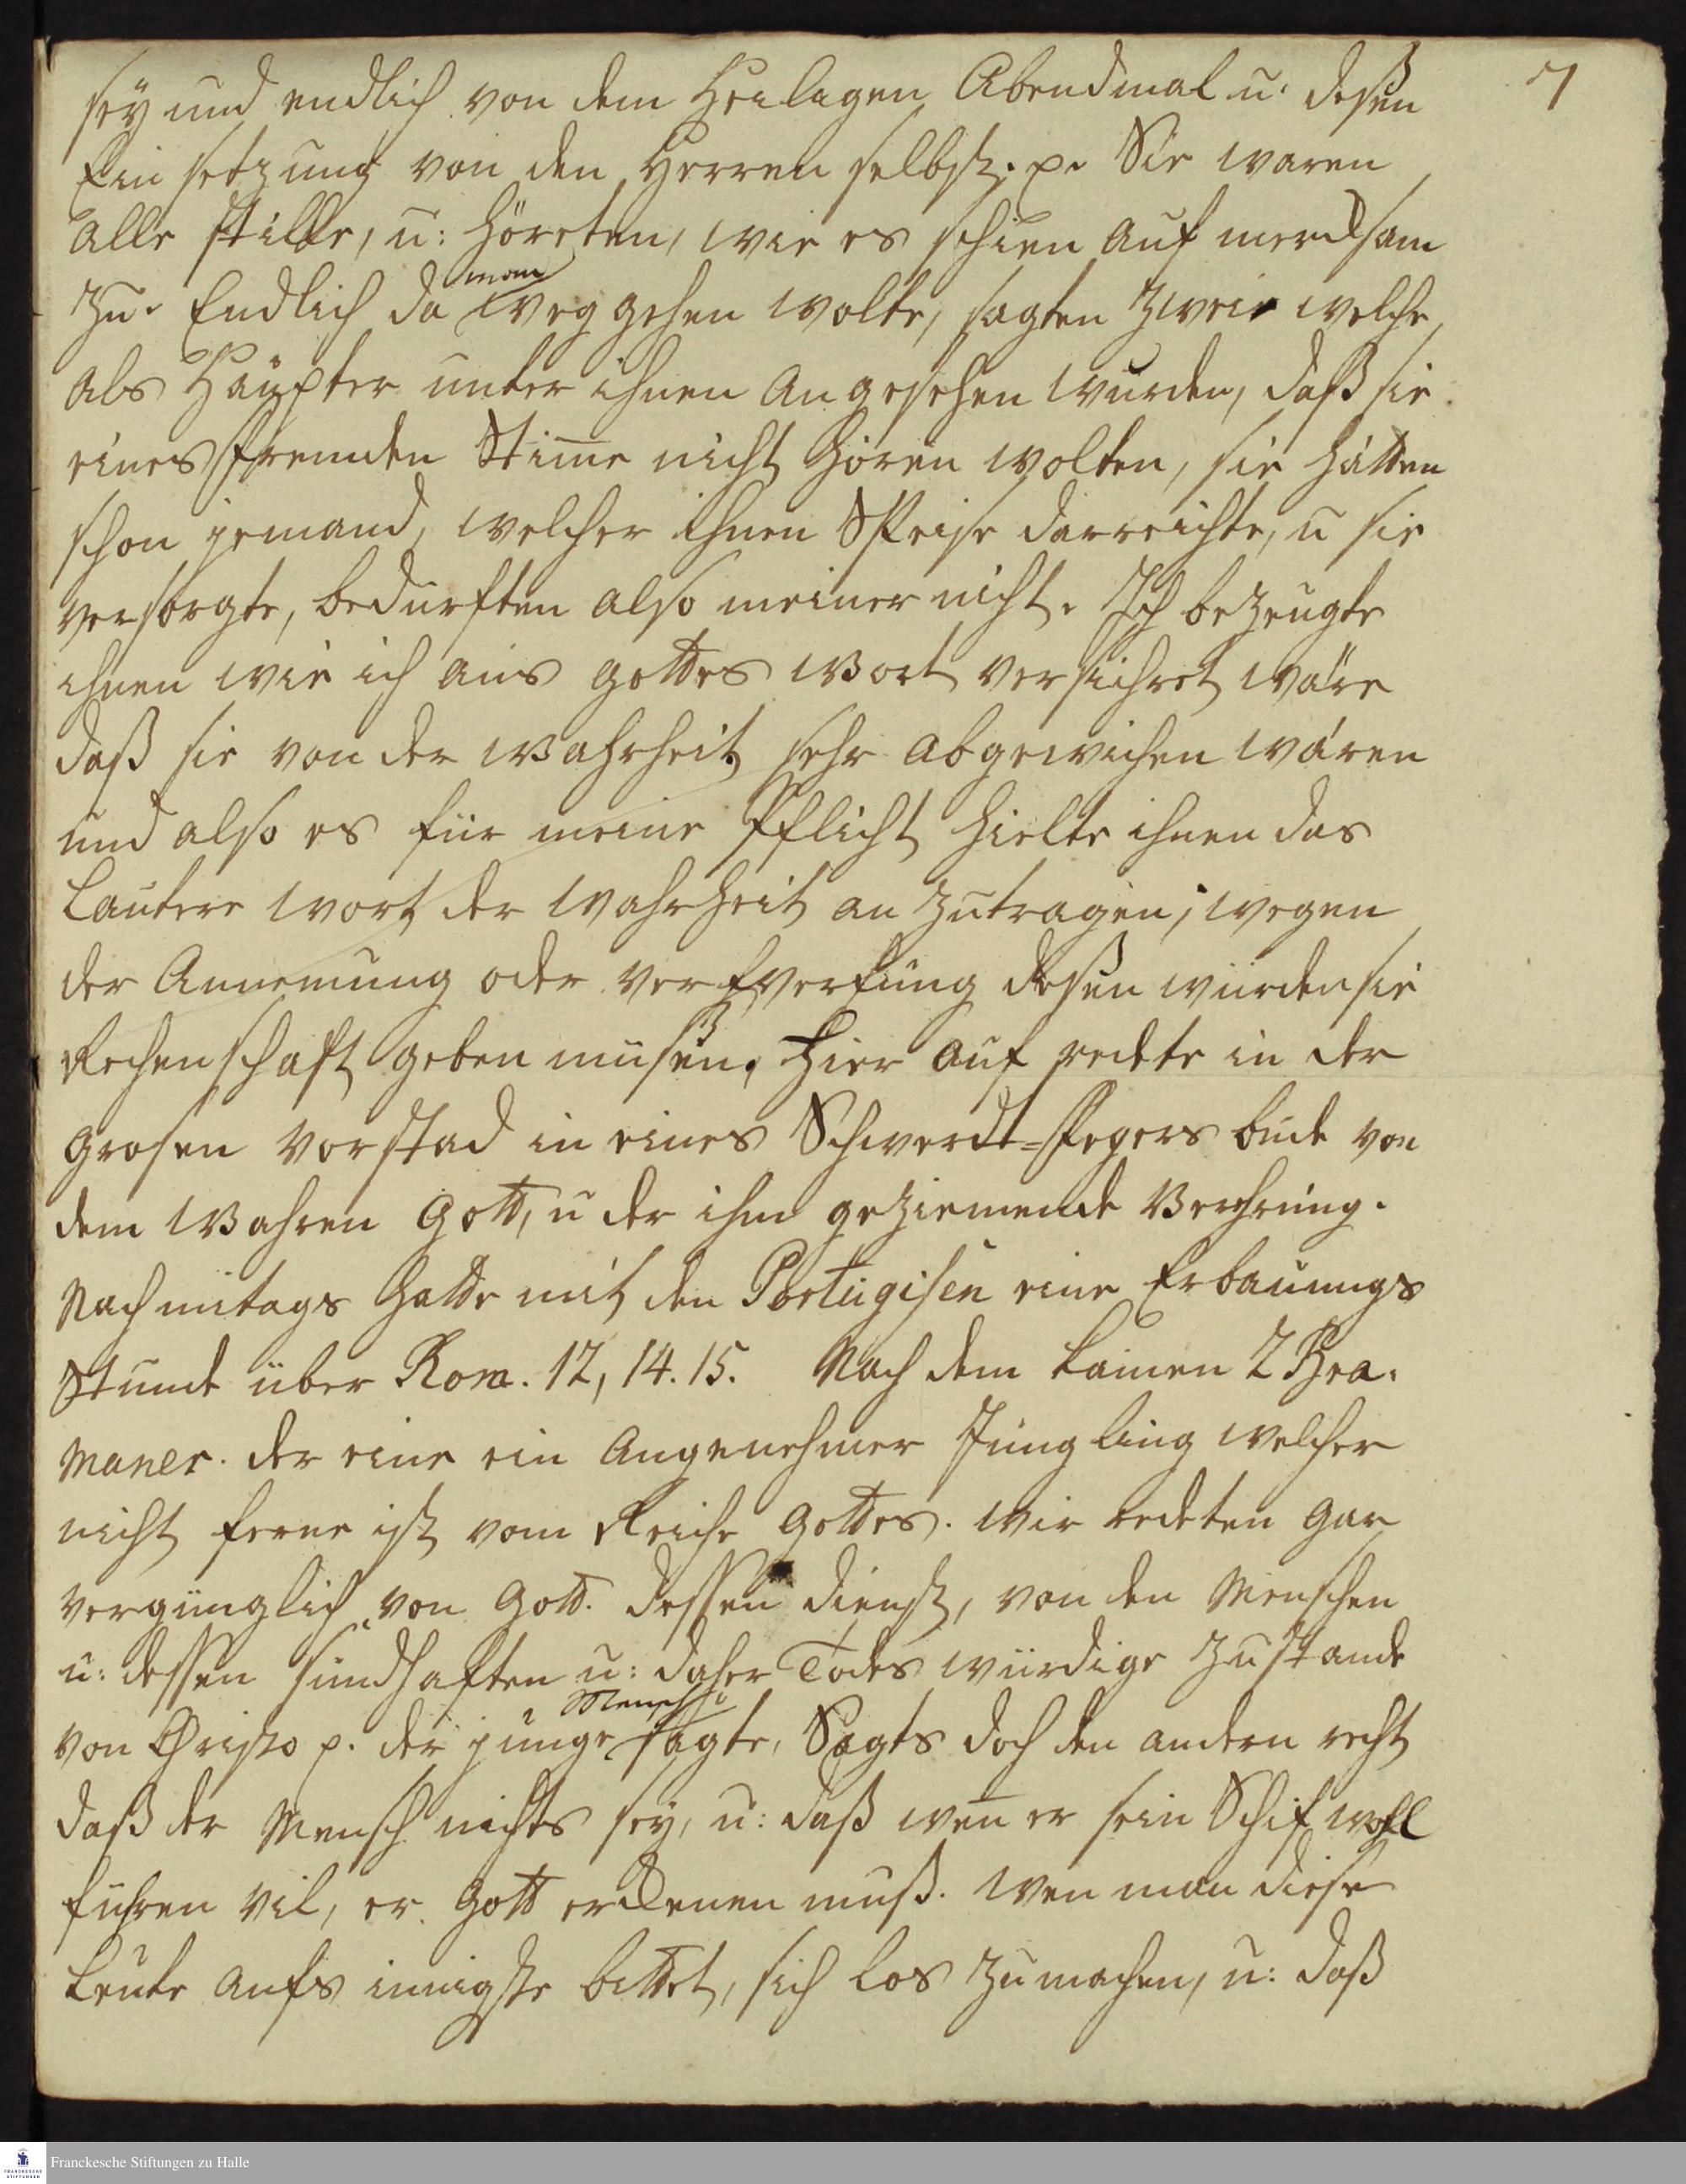 7
sey und endlich von dem Heiligen Abendmal u: deßen
Ein setzung von den Herren selbst. p. Sie waren
alle stille, u: höreten, wie es schien auf mercksam
zu. Endlich da man weg gehen wolte, sagten zweie welche
als Häupter unter ihnen angesehen wurden, daß sie
eines fremden Stime nicht hören wolten, sie hätten
schon jemand, welcher ihnen Speise darreichte, u sie
versorgte, bedurften also meiner nicht. Ich bezeugte
ihnen wie ich aus Gottes Wort versichret wäre
daß sie von der Wahrheit sehr abgewichen wären
und also es für meine Pflicht hielte ihnen das
lautere Wort der Wahrheit an zutragen; wegen
der Annemung oder verwerfung deßen würden sie
Rechenschaft geben müßen. Hier auf redete in der
grosen Vorstad in eines Schwerdt=Fegers bude von
dem Wahren Gott, u der ihm geziemende Verehrung.
Nachmitags hatte mit den Portugisen eine Erbauungs
Stunde über Rom. 12, 14. 15. Nach dem kamen 2 Bra.
maner. der eine ein angenehmer Jüngling welcher
nicht ferne ist vom Reiche Gottes. Wir redeten gar
vergnüglich von Gott. dessen dienst, von den Menschen
u: dessen sündhaften u: daher Todes würdige Zustande
von Christo p. der junge Mensch sagte, Sagts doch den andern recht
daß der Mensch nichts sey, u: daß wen er sein Schif wohl
führen vil, er Gott erckenen muß. Wen man diese
Leute aufs innigste bittet, sich los zu machen, u: daß
Franckesche Stiftungen zu Halle